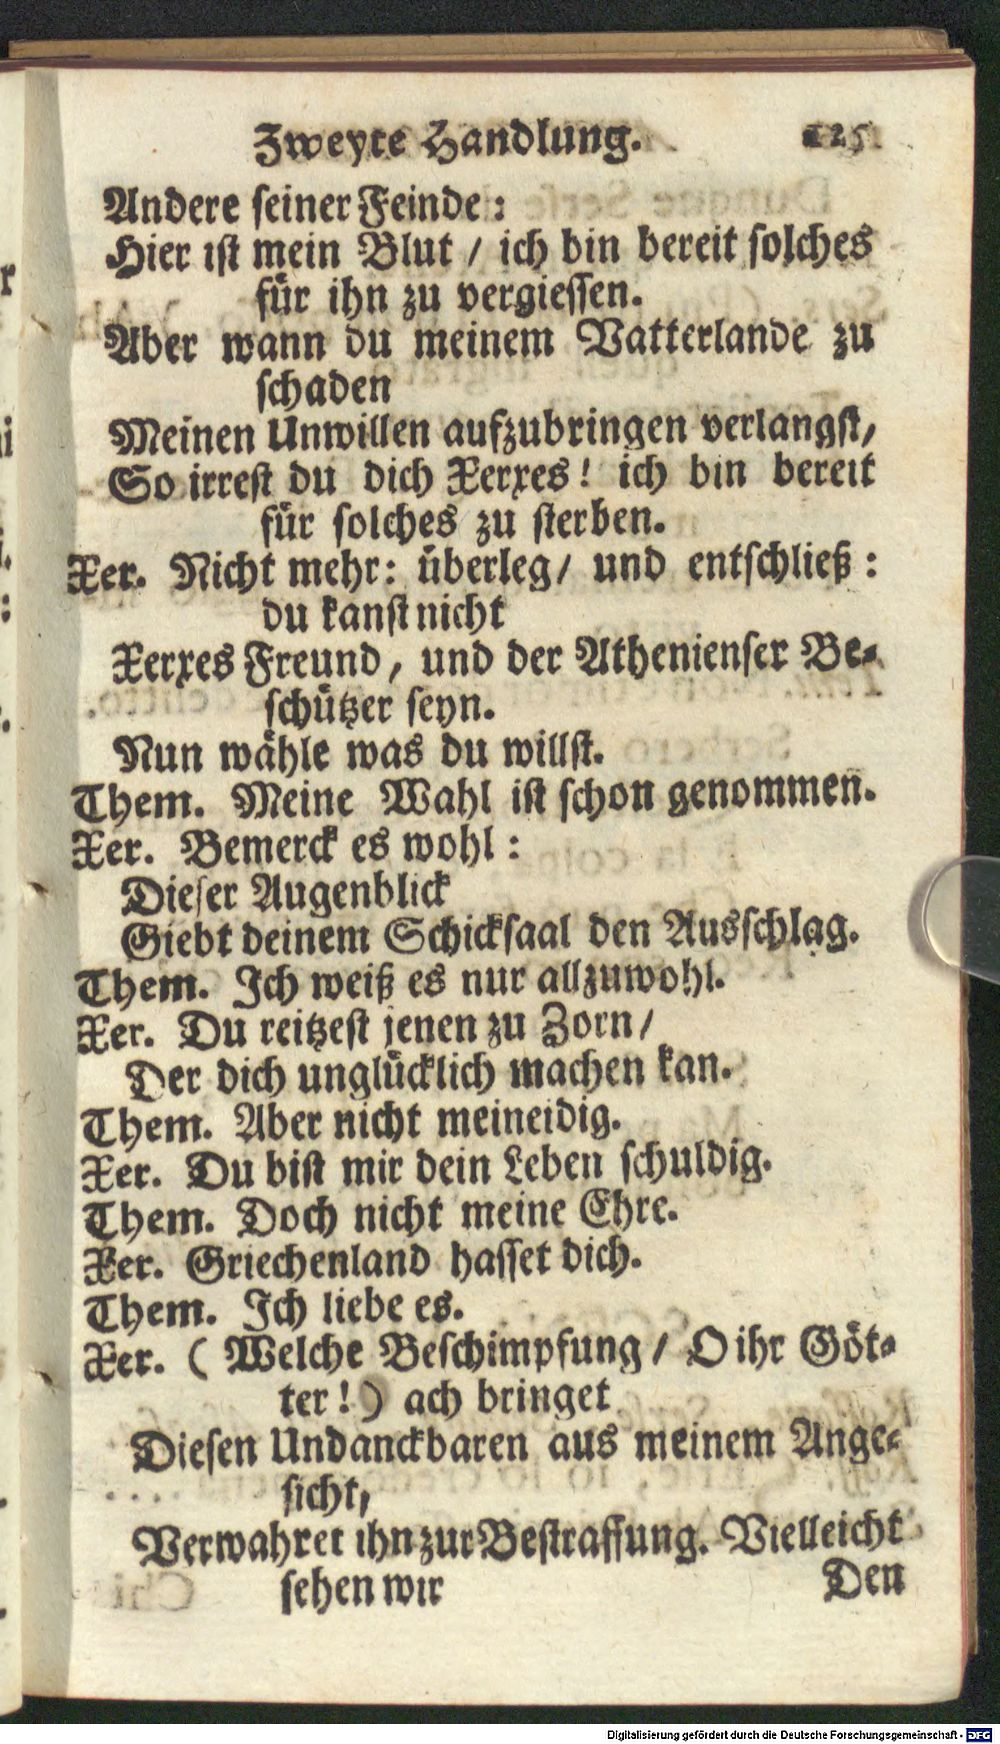 Zweyte Handlung. 125
Andere seiner Feinde:
Hier ist mein Blut / ich bin bereit solches
für ihn zu vergiessen.
Aber wann du meinem Vatterlande zu
schaden
Meinen Unwillen aufzubringen verlangst,
So irrest du dich Xerxes! ich bin bereit
für solches zu sterben.
Xer. Nicht mehr: überleg / und entschließ:
du kanst nicht
Xerxes Freund, und der Athenienser Be-
schützer seyn.
Nun wähle was du willst.
Them. Meine Wahl ist schon genommen.
Xer. Bemerck es wohl:
Dieser Augenblick
Giebt deinem Schicksaal den Ausschlag.
Them. Ich weiß es nur allzuwohl.
Xer. Du reitzest jenen zu Zorn /
Der dich unglücklich machen kan.
Them. Aber nicht meineidig.
Xer. Du bist mir dein Leben schuldig.
Them. Doch nicht meine Ehre.
Xer. Griechenland hasset dich.
Them. Ich liebe es.
Xer. (Welche Beschimpfung / O ihr Göt-
ter!) ach bringet
Diesen Undanckbaren aus meinem Ange-
sicht,
Verwahret ihn zur Bestraffung. Vielleicht
sehen wir Den
Digitalisierung gefördert durch die Deutsche Forschungsgemeinschaft - DFG